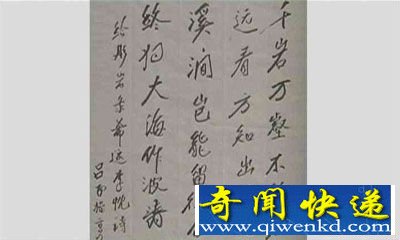 千岩万壑不
远看方知出
溪涧岂能留
终归大海作波涛
李忱诗
吕
奇闻快递
www.qiwenkd.com